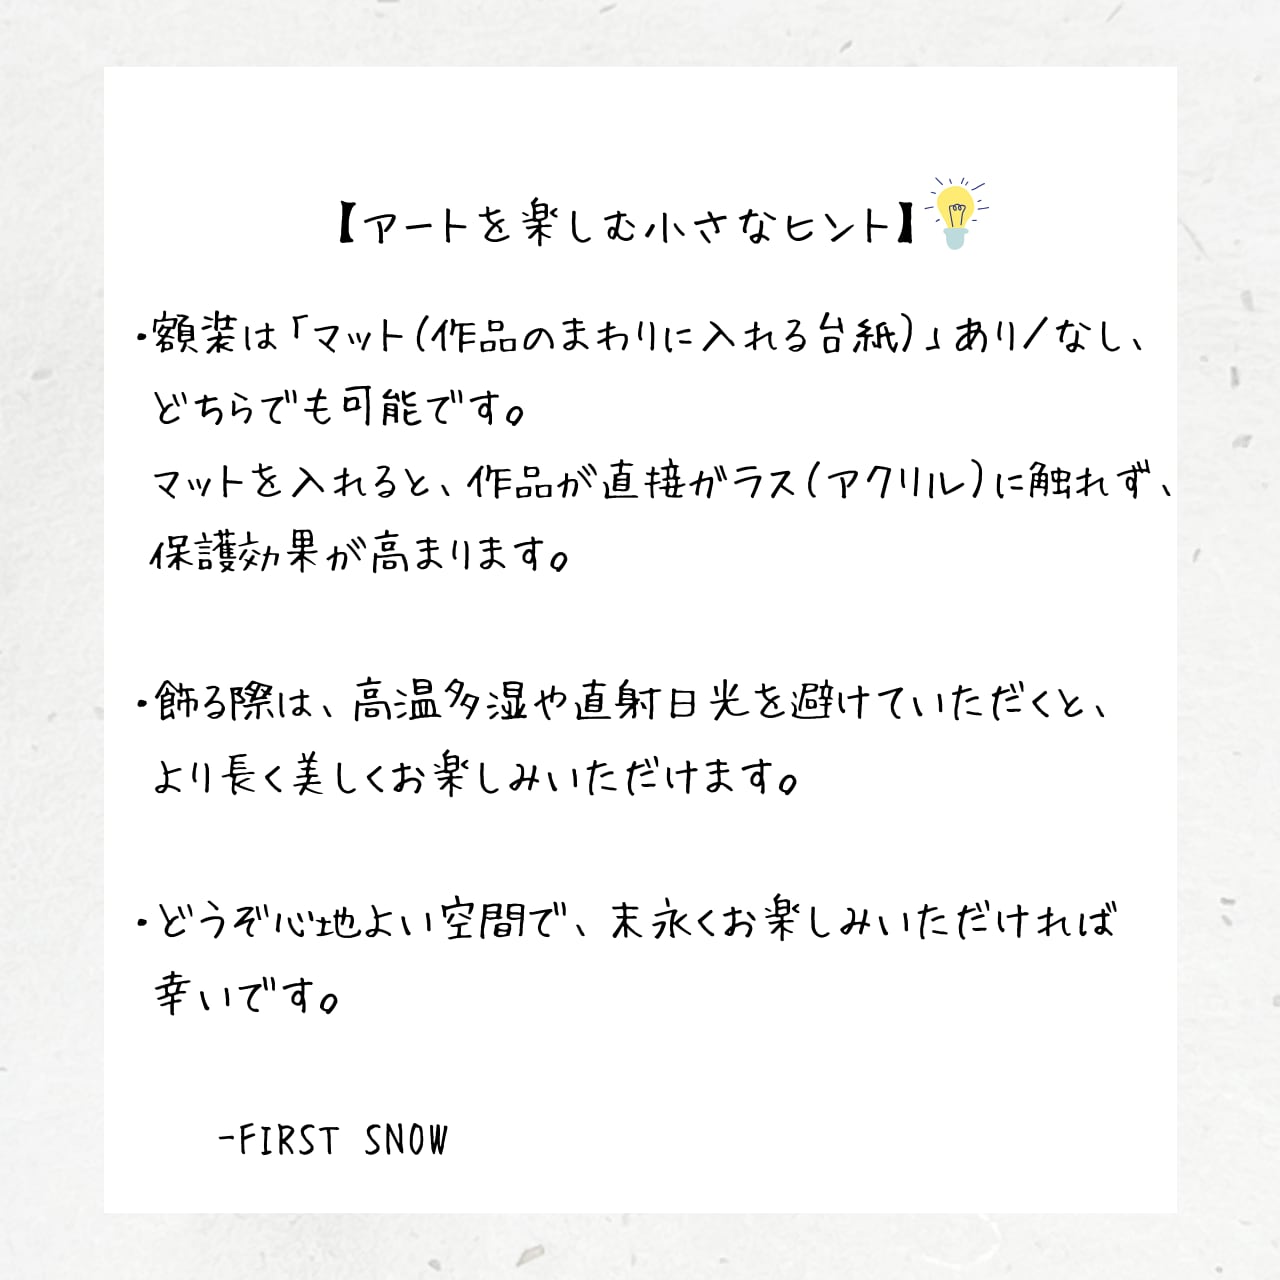 【アートを楽しむ小さなヒント】
・額装は「マット(作品のまわりに入れる台紙)」あり/なし、
どちらでも可能です。
マットを入れると、作品が直接ガラス(アクリル)に触れず、
保護効果が高まります。
・飾る際は、高温多湿や直射日光を避けていただくと、
より長く美しくお楽しみいただけます。
・どうぞ心地よい空間で、末永くお楽しみいただければ
幸いです。
-FIRST SNOW